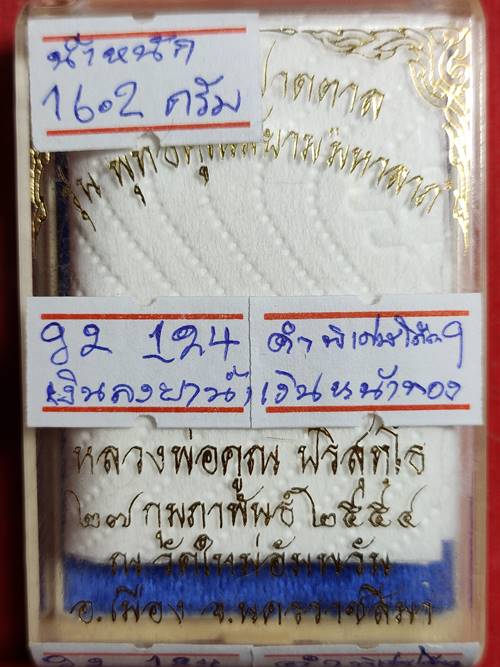 น้ำหนัก
16.2 กรัม
ปาดตาล
รุ่น พุทธคูณสยามมหาลาภ
92 124
เงินลงยาน้ำ
ตำพิเศษโค๊ต9
เงินหน้าทอง
หลวงพ่อคูณ ปริสุทฺโธ
๒๗ กุมภาพันธ์ ๒๕๕๔
ณ วัดใหม่อัมพวัน
อ.เมือง จ.นครราชสีมา